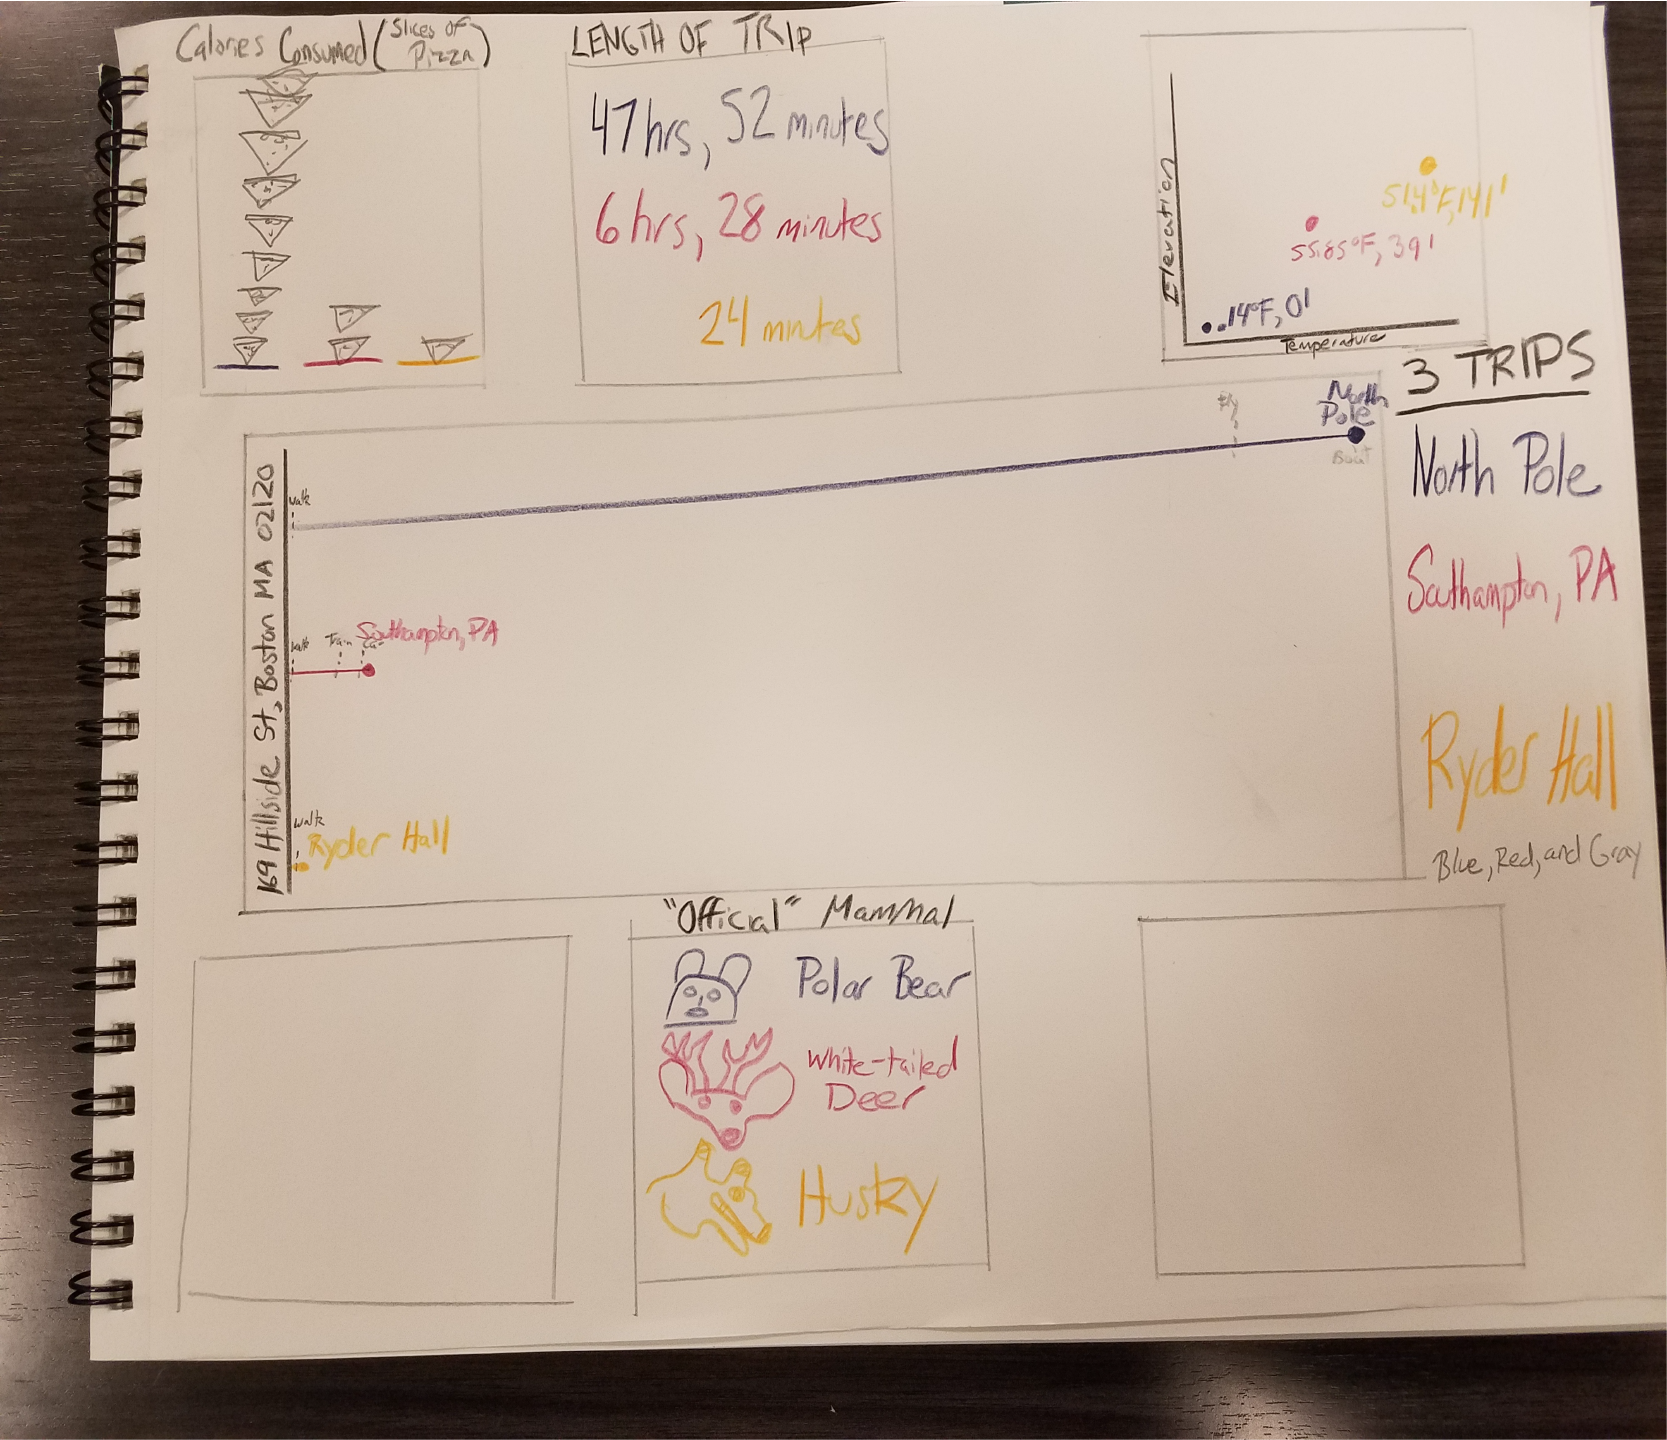 Calories Consumed (Slices of
Pizza)
LENGTH OF TRIP
47 hrs, 52 minutes
6 hrs, 28 minutes
24 minutes
Elevation
51.4°F, 141'
55.85°F, 391'
.14°F, 0'
Temperature
3 TRIPS
North Pole
Southampton, PA
Ryder Hall
Blue, Red, and Gray
169 Hillside St, Boston MA 02120
walk
North
Pole
Boat
walk Train Car Southampton, PA
walk
Ryder Hall
"Official" Mammal
Polar Bear
White-tailed
Deer
Husky